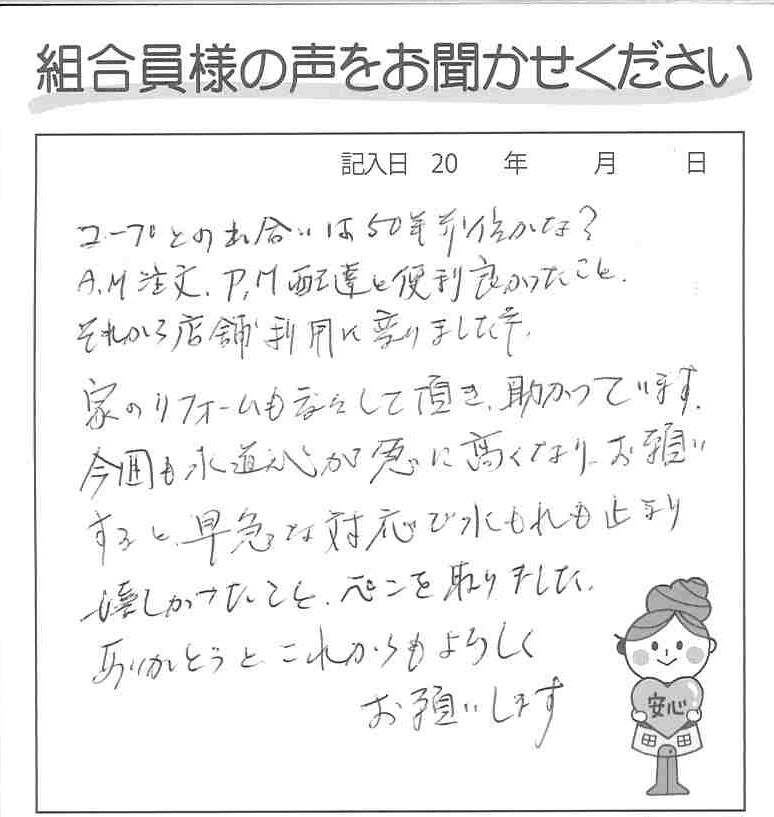 組合員様の声をお聞かせください
記入日 20 年 月 日
コープとの出合いは50年前位かな?
A.M注文、P.M配達と便利良かったこと、
それから店舗利用に変りました
家のリフォームも色々して頂き、助かっています。
今回も水道代が急に高くなり、お願い
すると、早急な対応で水もれも止まり
嬉しかったこと、ペンを取りました。
ありがとうと、これからもよろしく
お願いします
安心